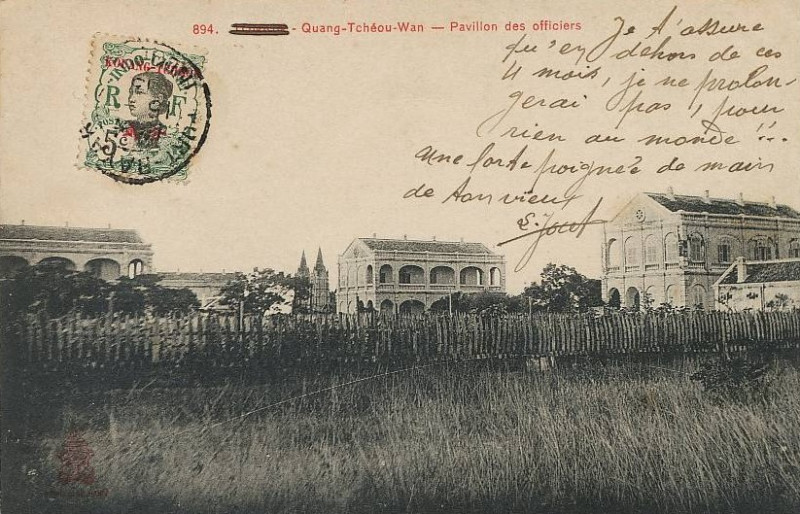 894. - Quang-Tchéou-Wan — Pavillon des officiers
Je t'assure
qu'en dehors de ces
4 mois, je ne prolon-
gerai pas, pour
rien au monde !!.
Une forte poignée de main
de ton vieux
INDO-CHINE
R F
5c